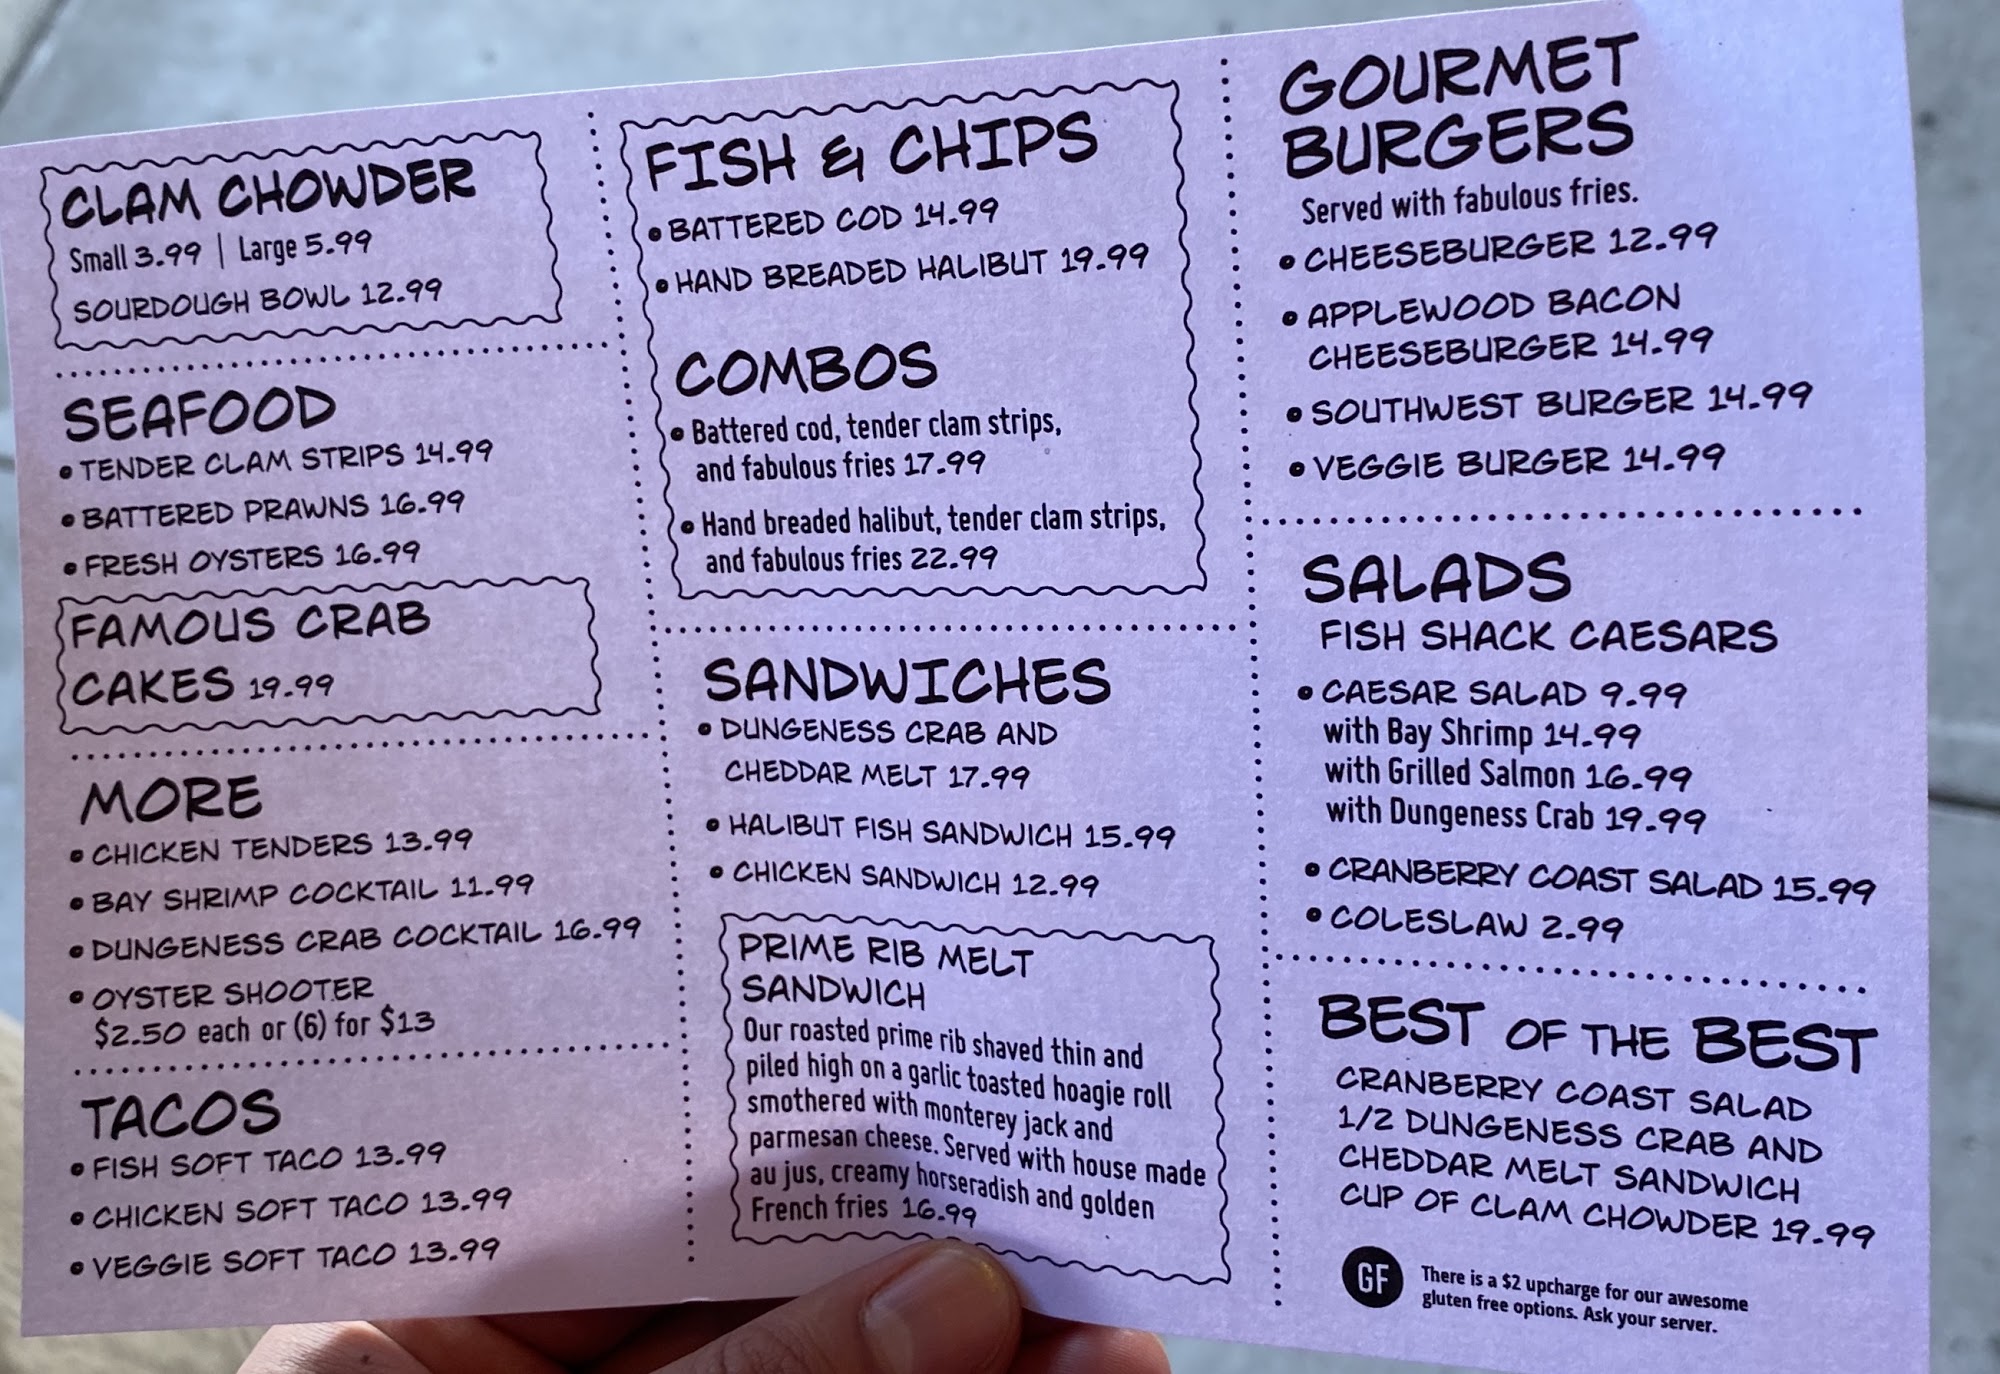 CLAM CHOWDER
Small 3.99 | Large 5.99
SOURDOUGH BOWL 12.99
SEAFOOD
• TENDER CLAM STRIPS 14.99
• BATTERED PRAWNS 16.99
• FRESH OYSTERS 16.99
FAMOUS CRAB
CAKES 19.99
MORE
• CHICKEN TENDERS 13.99
• BAY SHRIMP COCKTAIL 11.99
• DUNGENESS CRAB COCKTAIL 16.99
• OYSTER SHOOTER
$2.50 each or (6) for $13
TACOS
• FISH SOFT TACO 13.99
• CHICKEN SOFT TACO 13.99
• VEGGIE SOFT TACO 13.99
FISH & CHIPS
• BATTERED COD 14.99
• HAND BREADED HALIBUT 19.99
COMBOS
• Battered cod, tender clam strips,
and fabulous fries 17.99
• Hand breaded halibut, tender clam strips,
and fabulous fries 22.99
SANDWICHES
• DUNGENESS CRAB AND
CHEDDAR MELT 17.99
• HALIBUT FISH SANDWICH 15.99
• CHICKEN SANDWICH 12.99
PRIME RIB MELT
SANDWICH
Our roasted prime rib shaved thin and
piled high on a garlic toasted hoagie roll
smothered with monterey jack and
parmesan cheese. Served with house made
au jus, creamy horseradish and golden
French fries 16.99
GOURMET
BURGERS
Served with fabulous fries.
• CHEESEBURGER 12.99
• APPLEWOOD BACON
CHEESEBURGER 14.99
• SOUTHWEST BURGER 14.99
• VEGGIE BURGER 14.99
SALADS
FISH SHACK CAESARS
• CAESAR SALAD 9.99
with Bay Shrimp 14.99
with Grilled Salmon 16.99
with Dungeness Crab 19.99
• CRANBERRY COAST SALAD 15.99
• COLESLAW 2.99
BEST OF THE BEST
CRANBERRY COAST SALAD
1/2 DUNGENESS CRAB AND
CHEDDAR MELT SANDWICH
CUP OF CLAM CHOWDER 19.99
GF There is a $2 upcharge for our awesome
gluten free options. Ask your server.